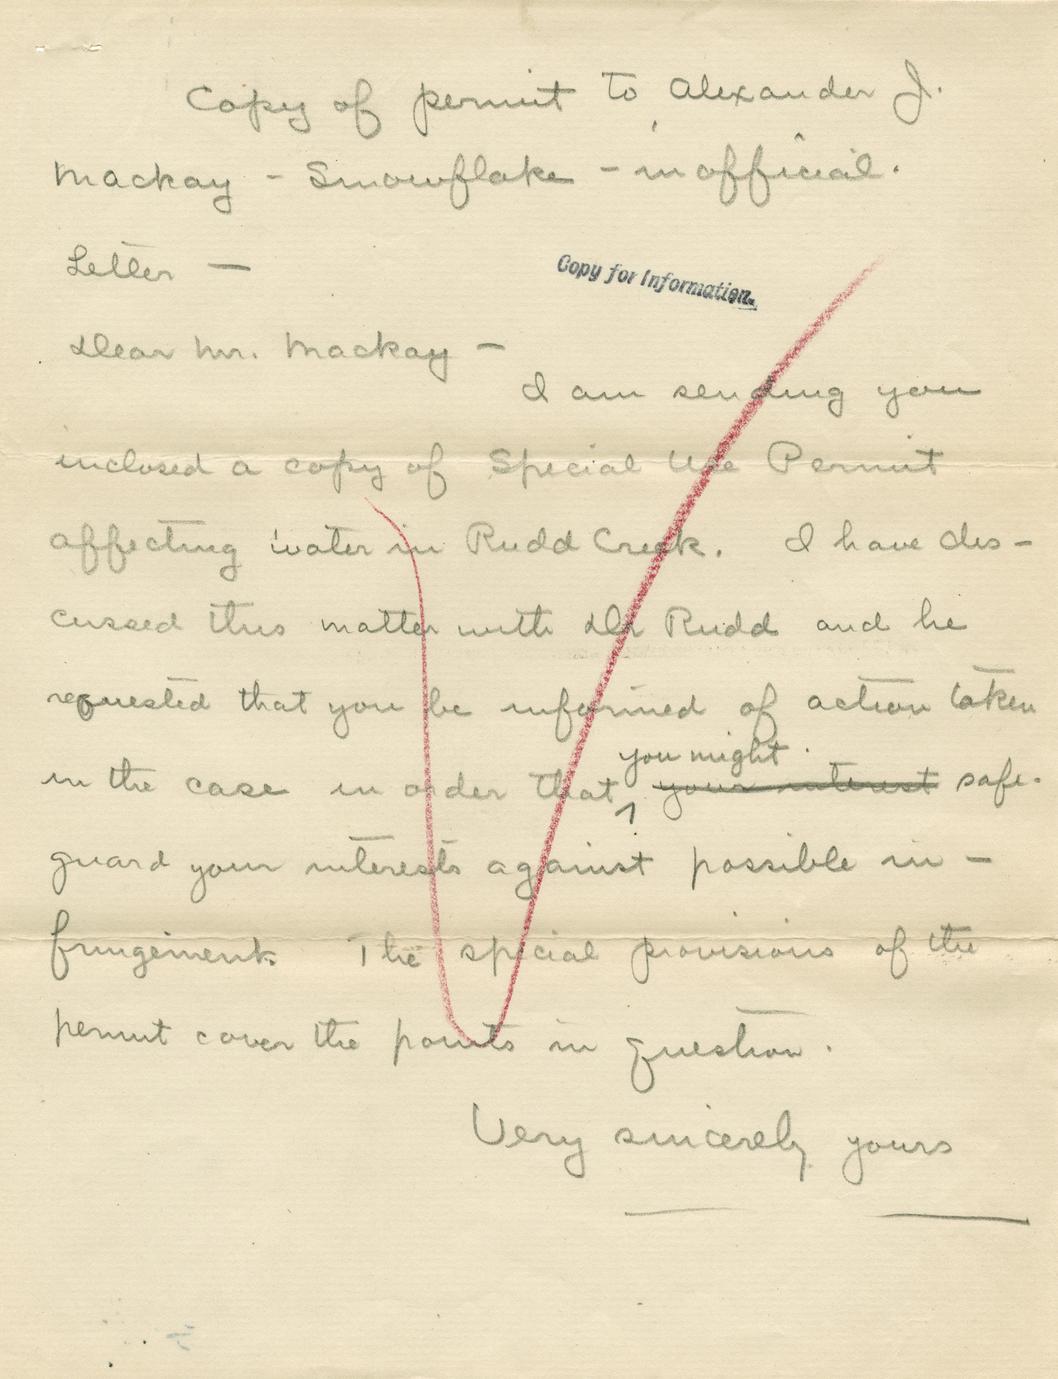 Copy of permit to Alexander J.
Mackay - Snowflake - inofficial.
Letter —
Copy for Information.
Dear Mr. Mackay —
I am sending you
inclosed a copy of Special Use Permit
affecting water in Rudd Creek. I have dis-
cussed this matter with Dr Rudd and he
requested that you be informed of action taken
you might
in the case in order that your interest safe-
guard your interests against possible in-
fringement. The special provisions of the
permit cover the points in question.
Very sincerely yours